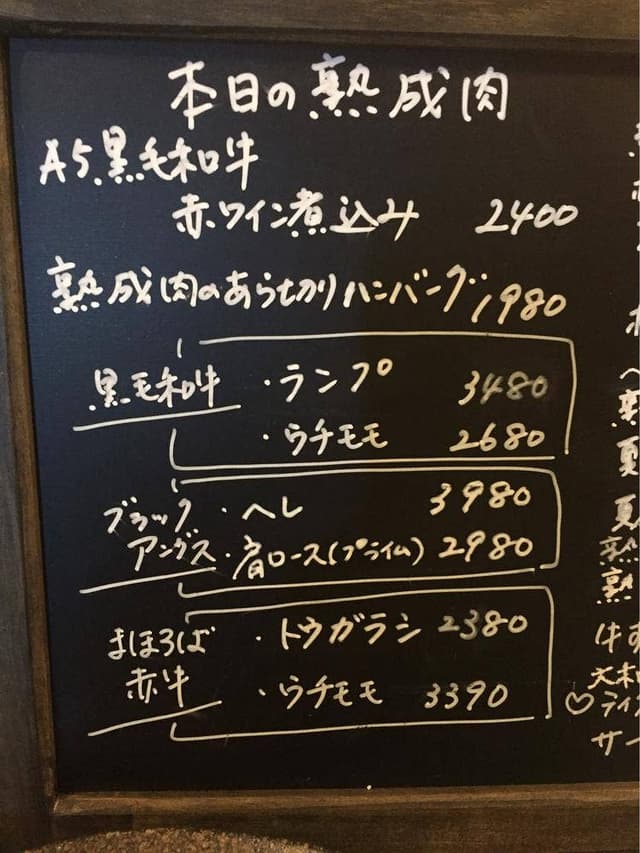 本日の熟成肉
A5黒毛和牛
赤ワイン煮込み 2400
熟成肉のあら切りハンバーグ 1980
黒毛和牛 ・ランプ 3480
・ウチモモ 2680
ブラック ・ヘレ 3980
アングス ・肩ロース(プライム) 2980
まほろば ・トウガラシ 2380
赤牛 ・ウチモモ 3390
夏
夏
熟
熟
♡ライ
サー